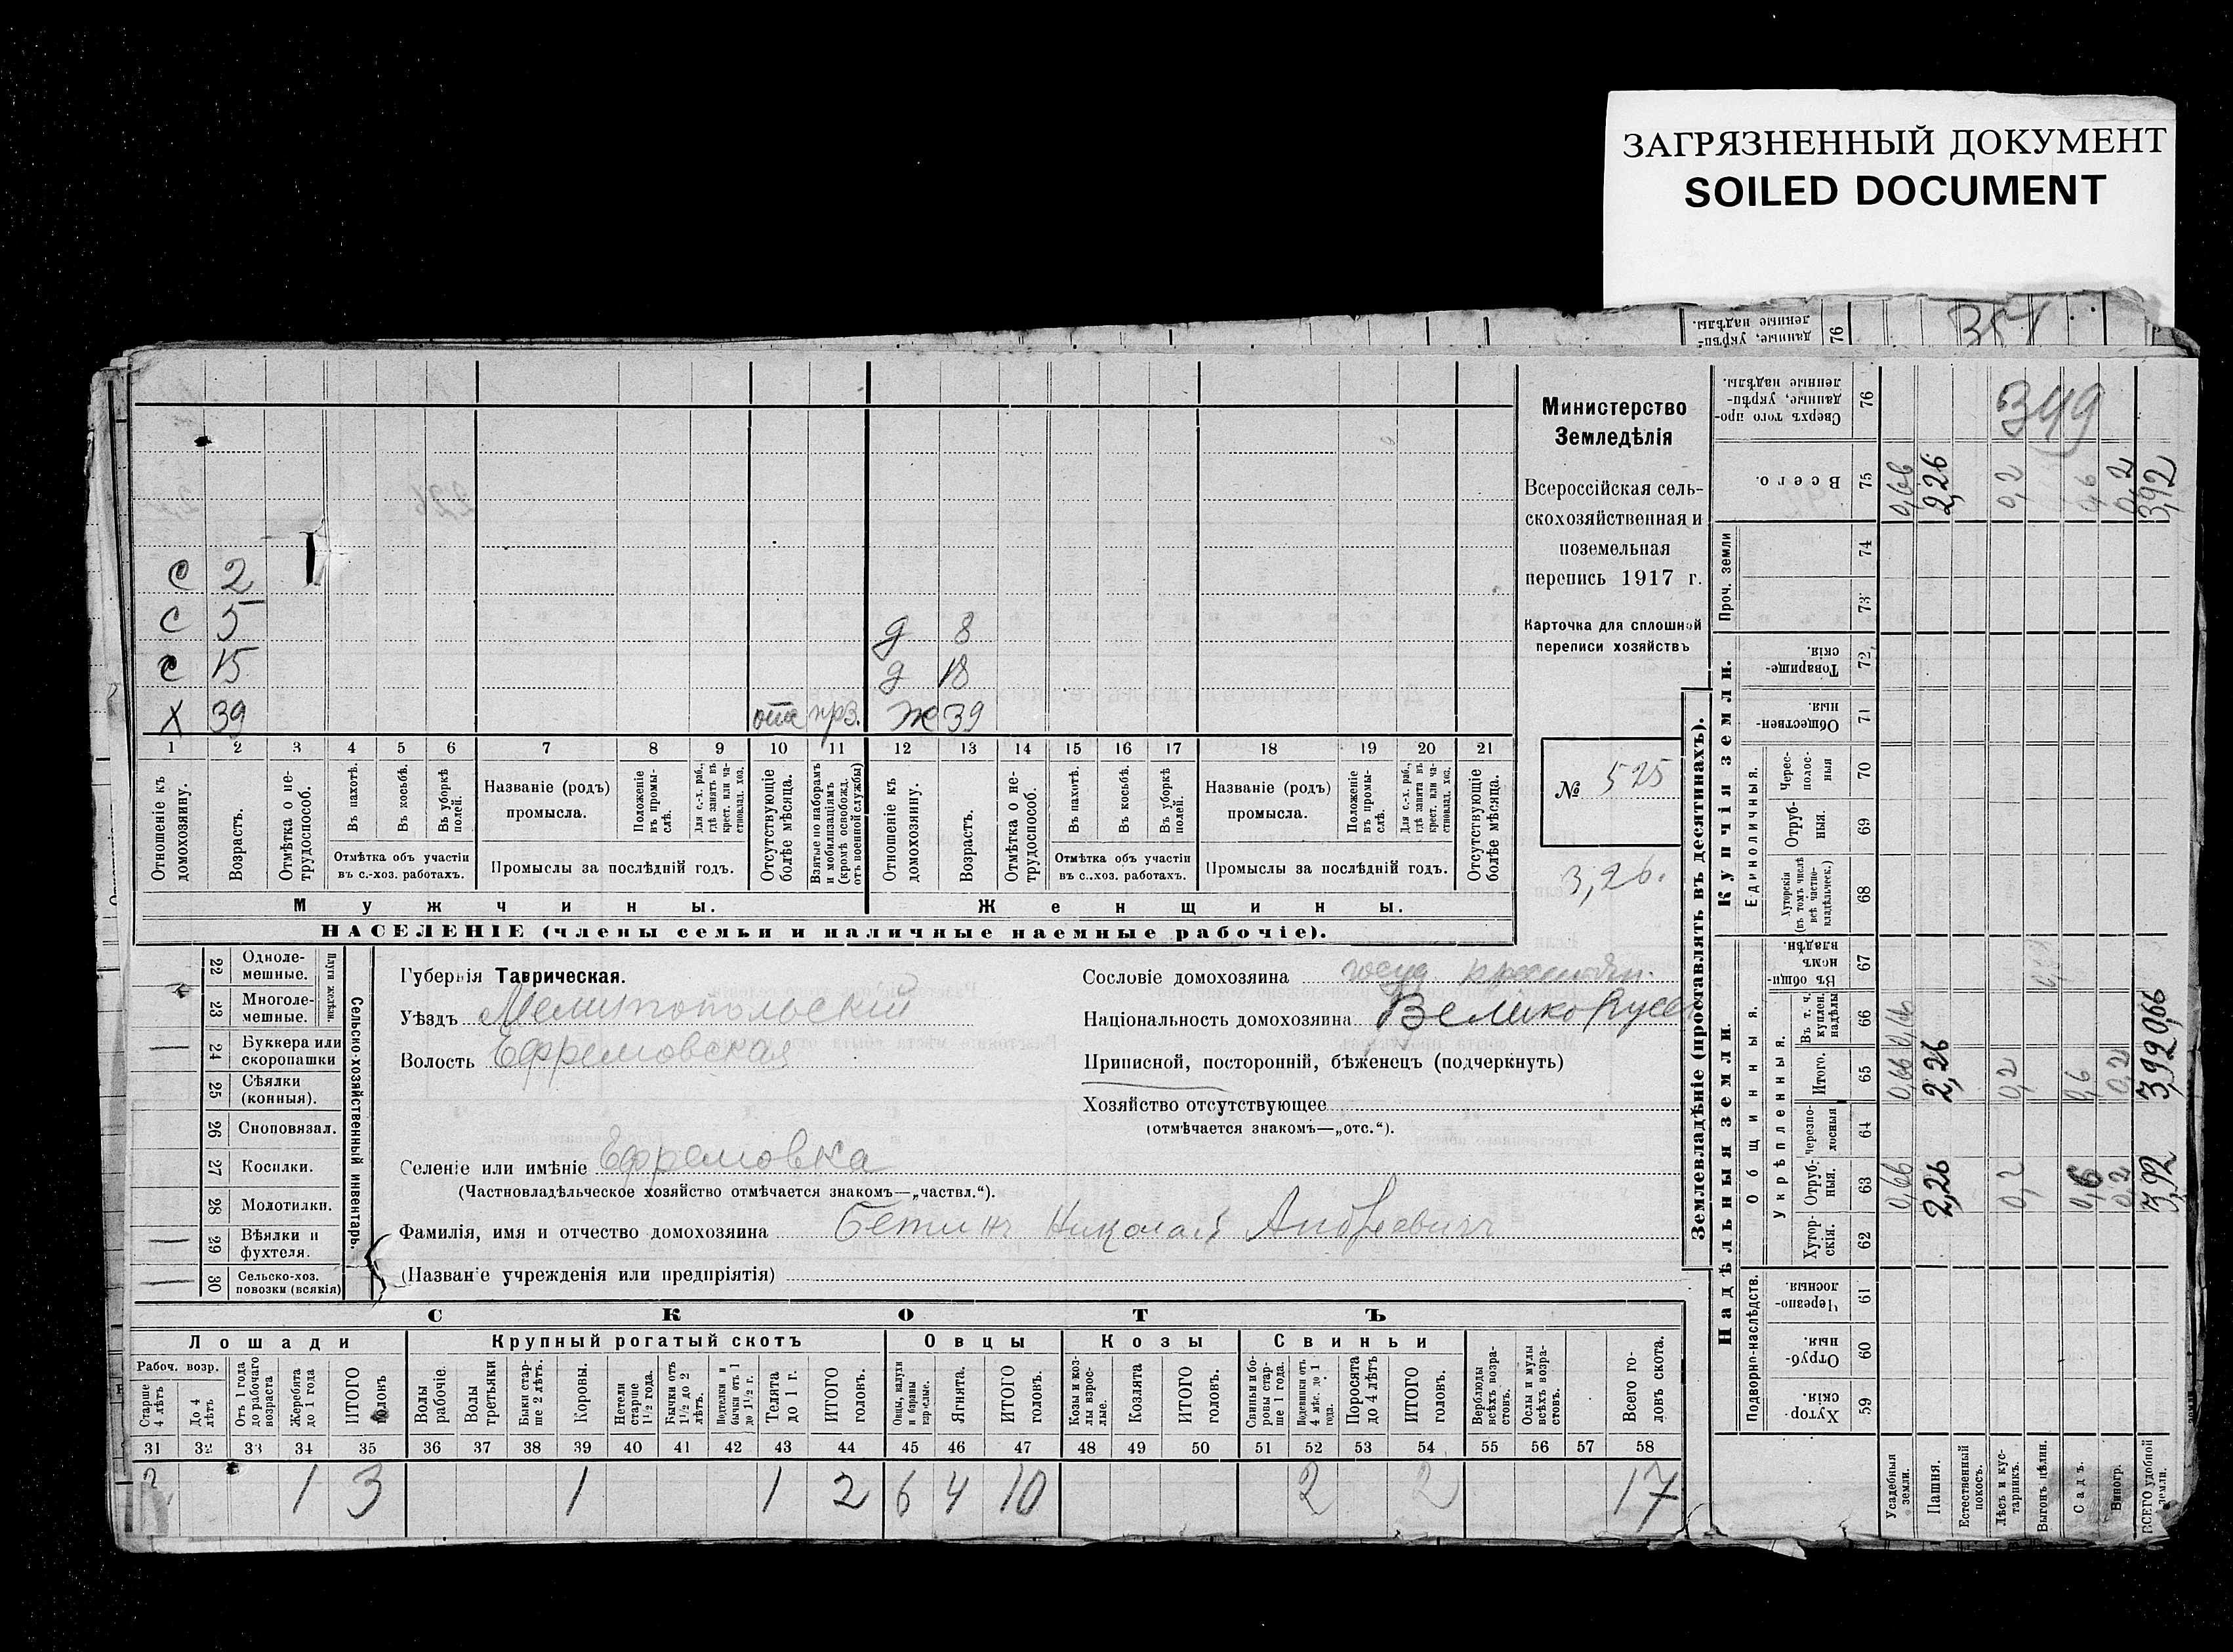 ЗАГРЯЗНЕННЫЙ ДОКУМЕНТ
SOILED DOCUMENT
351
76
349
Министерство
Земледѣлія
Всероссійская сель-
скохозяйственная и
поземельная
перепись 1917 г.
Карточка для сплошной
переписи хозяйствъ
№ 525
3,26.
с 2
с 5 д 8
с 15 д 18
х 39 отс прз. ж 39
1 2 3 4 5 6 7 8 9 10 11 12 13 14 15 16 17 18 19 20 21
Отношеніе къ домохозяину.
Возрастъ.
Отмѣтка о не-трудоспособ.
Въ пахотѣ.
Въ косьбѣ.
Въ уборкѣ полей.
Отмѣтка объ участіи
въ с.-хоз. работахъ.
Названіе (родъ)
промысла.
Положеніе въ промы-слѣ.
Для с.-х. раб., гдѣ занятъ въ крест. или ча-стновлад. хоз.
Промыслы за послѣдній годъ.
Отсутствующіе болѣе мѣсяца.
Взятые по наборамъ и мобилизаціямъ (кромѣ освобожд. отъ военной службы)
Отношеніе къ домохозяину.
Возрастъ.
Отмѣтка о не-трудоспособ.
Въ пахотѣ.
Въ косьбѣ.
Въ уборкѣ полей.
Отмѣтка объ участіи
въ с..хоз. работахъ.
Названіе (родъ)
промысла.
Положеніе въ промы-слѣ.
Для с.-х. раб., гдѣ занята въ крест. или ча-стновлад. хоз.
Промыслы за послѣдній годъ.
Отсутствующіе болѣе мѣсяца.
Мужчины. Женщины.
НАСЕЛЕНІЕ (члены семьи и наличные наемные рабочіе).
Сельско-хозяйственный инвентарь.
Плуги желѣзн.
22 Однолe-мешные.
23 Многоле-мешные.
— 24 Буккера или скоропашки
25 Сѣялки (конныя).
26 Сноповязал.
27 Косилки.
28 Молотилки.
— 29 Вѣялки и фухтеля.
— 30 Сельско-хоз. повозки (всякія)
Губернія Таврическая.
Уѣздъ Мелитопольскій
Волость Ефремовская
Селеніе или имѣніе Ефремовка
(Частновладѣльческое хозяйство отмѣчается знакомъ—„частвл.“).
Фамилія, имя и отчество домохозяина Бетинъ Николай Андреевичъ
(Названіе учрежденія или предпріятія)
Сословіе домохозяина госуд. крестьян.
Національность домохозяина Великорусс
Приписной, посторонній, бѣженецъ (подчеркнуть)
Хозяйство отсутствующее
(отмѣчается знакомъ—„отс.“).
СКОТЪ
Лошади Крупный рогатый скотъ Овцы Козы Свиньи
Рабоч. возр.
Старше 4 лѣтъ
До 4 лѣтъ
Отъ 1 года до рабочаго возраста
Жеребята до 1 года
ИТОГО головъ
Волы рабочіе.
Волы третьяки
Быки стар-ше 2 лѣтъ.
Коровы.
Нетели старше 1½ года.
Бычки отъ 1½ до 2 лѣтъ.
Подтелки и бычки отъ 1 до 1½ г.
Телята до 1 г.
ИТОГО головъ.
Овцы, валухи и бараны взрослые.
Ягнята.
ИТОГО головъ.
Козы и коз-лы взрос-лые.
Козлята
ИТОГО головъ.
Свиньи и бо-ровы стар-ше 1 года.
Подсвинки отъ 4 мѣс. до 1 года.
Поросята до 4 лѣтъ
ИТОГО головъ.
Верблюды всѣхъ возра-стовъ.
Ослы и мулы всѣхъ возра-стовъ.
Всего го-ловъ скота.
31 32 33 34 35 36 37 38 39 40 41 42 43 44 45 46 47 48 49 50 51 52 53 54 55 56 57 58
2 1 3 1 1 2 6 4 10 2 2 17
Землевладѣніе (проставлять въ десятинахъ).
Надѣльныя земли. Купчія земли. Проч. земли
Подворно-наслѣдств. Общинныя.
Укрѣпленныя. Единоличныя.
Хутор-скія. 59
Отруб-ныя. 60
Черезпо-лосныя. 61
Хутор-скія. 62
Отруб-ныя. 63
черезпо-лосныя 64
Итого. 65
Въ т. ч. куплен. надѣлы 66
Въ общи-номъ владѣн. 67
Хуторскія (въ томъ числѣ всѣ частно-владѣльческ.) 68
Отруб-ныя. 69
Черес-полос-ныя 70
Обществен-ныя. 71
Товарище-скія. 72
73 74
Всего. 75
Сверхъ того про-данные, укрѣп-ленные надѣлы. 76
Усадебныя земли. 0,66 0,66 0,16 0,66
Пашня. 2,26 2,26 2,26
Естественный покосъ.
Лѣсъ и кус-тарникъ. 0,2 0,2 0,2
Выгонъ цѣлин.
Садъ. 0,6 0,6 0,6
Виногр. 0,2 0,2 0,2
ВСЕГО удобной земли. 3,92 3,92 0,66 3,92